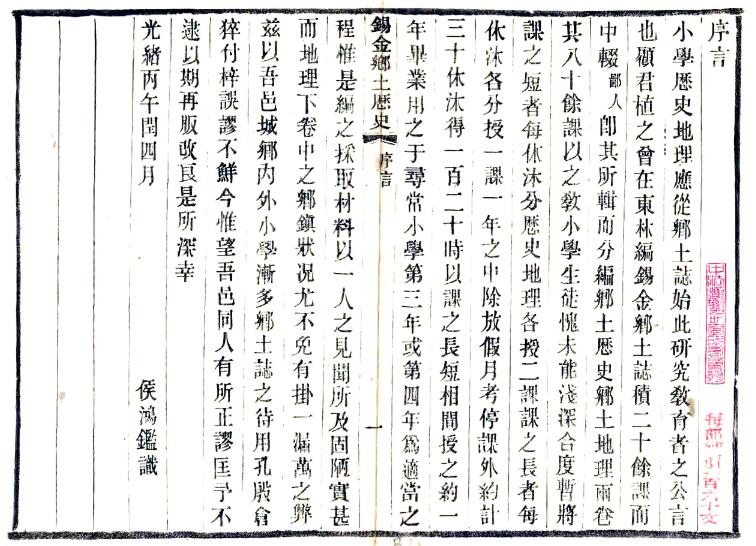 序言
小學歷史地理應從鄉土誌始此研究敎育者之公言
也顧君植之曾在東林編錫金鄉土誌積二十餘課而
中輟鄙人卽其所輯而分編鄉土歷史鄉土地理兩卷
其八十餘課以之敎小學生徒愧未能淺深合度暫將
課之短者每休沐分歷史地理各授二課課之長者每
休沐各分授一課一年之中除放假月考停課外約計
三十休沐得一百二十時以課之長短相間授之約一
年畢業用之于尋常小學第三年或第四年爲適當之
錫金鄉土歷史 序言 一
程惟是編之採取材料以一人之見聞所及固陋實甚
而地理下卷中之鄉鎭狀況尤不免有掛一漏萬之弊
茲以吾邑城鄉內外小學漸多鄉土誌之待用孔殷倉
猝付梓誤謬不鮮今惟望吾邑同人有所正謬匡予不
逮以期再版改良是所深幸
光緖丙午閏四月
侯鴻鑑識